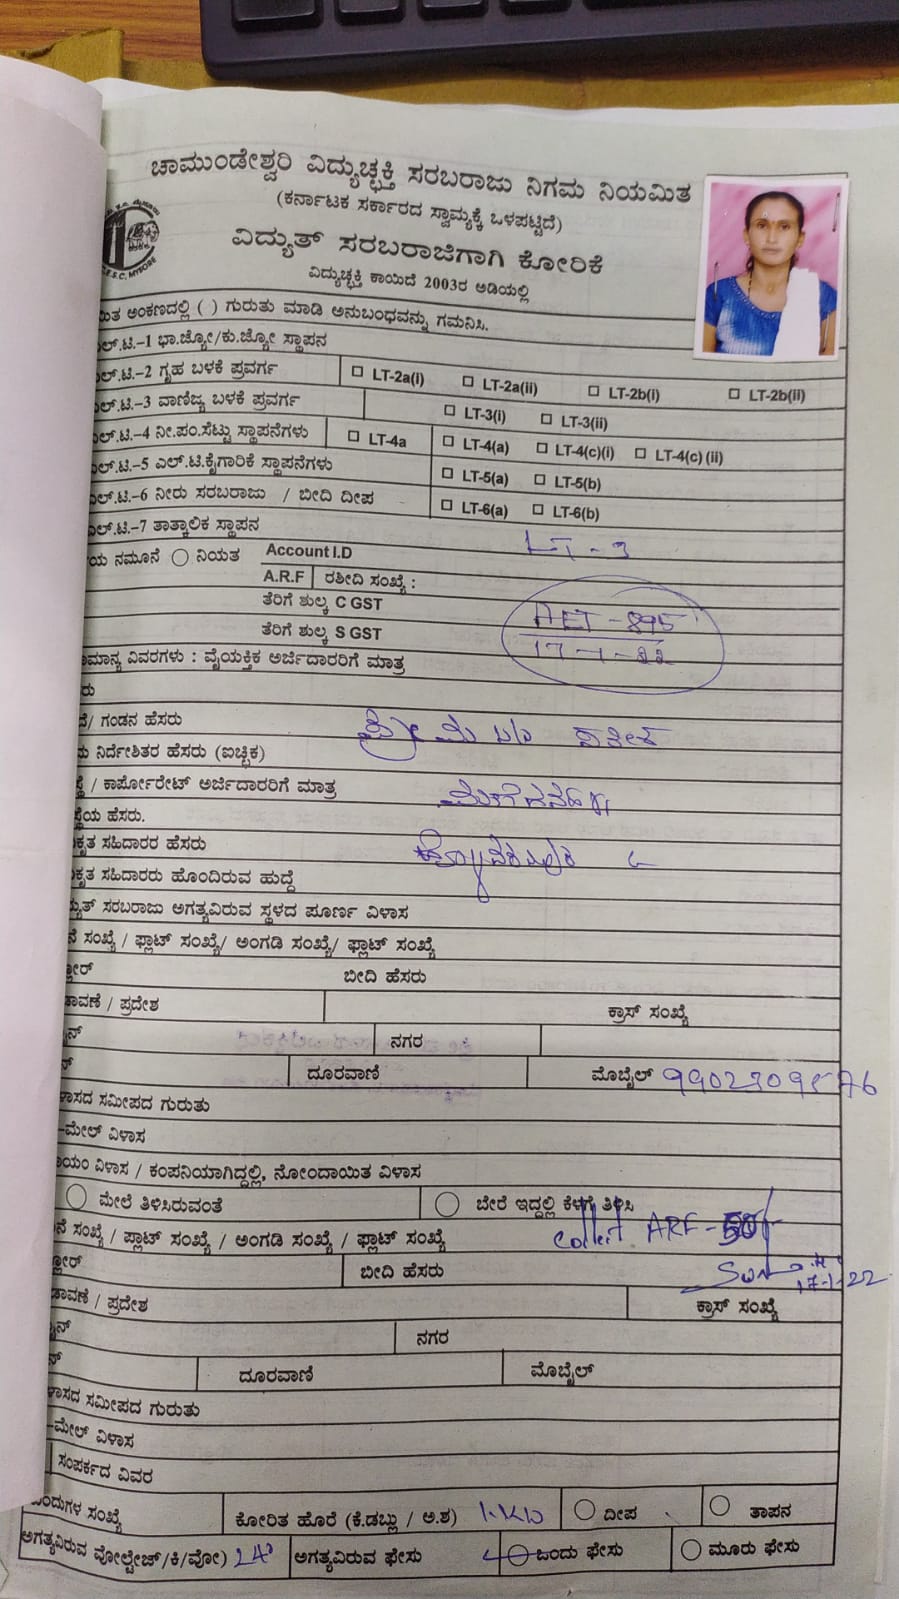 ಚಾಮುಂಡೇಶ್ವರಿ ವಿದ್ಯುಚ್ಛಕ್ತಿ ಸರಬರಾಜು ನಿಗಮ ನಿಯಮಿತ
(ಕರ್ನಾಟಕ ಸರ್ಕಾರದ ಸ್ವಾಮ್ಯಕ್ಕೆ ಒಳಪಟ್ಟಿದೆ)
ವಿದ್ಯುತ್ ಸರಬರಾಜಿಗಾಗಿ ಕೋರಿಕೆ
ವಿದ್ಯುಚ್ಛಕ್ತಿ ಕಾಯಿದೆ 2003ರ ಅಡಿಯಲ್ಲಿ
ಅಂಕಣದಲ್ಲಿ ( ) ಗುರುತು ಮಾಡಿ ಅನುಬಂಧವನ್ನು ಗಮನಿಸಿ.
ಲ್.ಟಿ.–1 ಭಾ.ಜ್ಯೋ/ಕು.ಜ್ಯೋ ಸ್ಥಾಪನ
ಲ್.ಟಿ.–2 ಗೃಹ ಬಳಕೆ ಪ್ರವರ್ಗ LT-2a(i) LT-2a(ii) LT-2b(i) LT-2b(ii)
ಲ್.ಟಿ.–3 ವಾಣಿಜ್ಯ ಬಳಕೆ ಪ್ರವರ್ಗ LT-3(i) LT-3(ii)
ಲ್.ಟಿ.–4 ನೀ.ಪಂ.ಸೆಟ್ಟು ಸ್ಥಾಪನೆಗಳು LT-4a LT-4(a) LT-4(c)(i) LT-4(c) (ii)
ಲ್.ಟಿ.–5 ಎಲ್.ಟಿ.ಕೈಗಾರಿಕೆ ಸ್ಥಾಪನೆಗಳು LT-5(a) LT-5(b)
ಲ್.ಟಿ.–6 ನೀರು ಸರಬರಾಜು / ಬೀದಿ ದೀಪ LT-6(a) LT-6(b)
ಎಲ್.ಟಿ.–7 ತಾತ್ಕಾಲಿಕ ಸ್ಥಾಪನ LT - 3
ಯ ನಮೂನೆ ನಿಯತ Account I.D
A.R.F ರಶೀದಿ ಸಂಖ್ಯೆ :
ತೆರಿಗೆ ಶುಲ್ಕ C GST
ತೆರಿಗೆ ಶುಲ್ಕ S GST
17-1-22
ಮಾನ್ಯ ವಿವರಗಳು : ವೈಯಕ್ತಿಕ ಅರ್ಜಿದಾರರಿಗೆ ಮಾತ್ರ
ರು
/ ಗಂಡನ ಹೆಸರು
ನಿರ್ದೇಶಿತರ ಹೆಸರು (ಐಚ್ಛಿಕ)
/ ಕಾರ್ಪೋರೇಟ್ ಅರ್ಜಿದಾರರಿಗೆ ಮಾತ್ರ
ಸ್ಥೆಯ ಹೆಸರು.
ಕೃತ ಸಹಿದಾರರ ಹೆಸರು
ಕೃತ ಸಹಿದಾರರು ಹೊಂದಿರುವ ಹುದ್ದೆ
ದ್ಯುತ್ ಸರಬರಾಜು ಅಗತ್ಯವಿರುವ ಸ್ಥಳದ ಪೂರ್ಣ ವಿಳಾಸ
ನೆ ಸಂಖ್ಯೆ / ಪ್ಲಾಟ್ ಸಂಖ್ಯೆ/ ಅಂಗಡಿ ಸಂಖ್ಯೆ/ ಫ್ಲಾಟ್ ಸಂಖ್ಯೆ
ಲೋರ್ ಬೀದಿ ಹೆಸರು
ಡಾವಣೆ / ಪ್ರದೇಶ ಕ್ರಾಸ್ ಸಂಖ್ಯೆ
ನಗರ
ದೂರವಾಣಿ ಮೊಬೈಲ್
ಳಾಸದ ಸಮೀಪದ ಗುರುತು
–ಮೇಲ್ ವಿಳಾಸ
ಾಯಂ ವಿಳಾಸ / ಕಂಪನಿಯಾಗಿದ್ದಲ್ಲಿ, ನೋಂದಾಯಿತ ವಿಳಾಸ
ಮೇಲೆ ತಿಳಿಸಿರುವಂತೆ ಬೇರೆ ಇದ್ದಲ್ಲಿ ಕೆಳಗೆ ತಿಳಿಸಿ
ನೆ ಸಂಖ್ಯೆ / ಪ್ಲಾಟ್ ಸಂಖ್ಯೆ / ಅಂಗಡಿ ಸಂಖ್ಯೆ / ಫ್ಲಾಟ್ ಸಂಖ್ಯೆ collect ARF
ಲೋರ್ ಬೀದಿ ಹೆಸರು 17-1-22
ಡಾವಣೆ / ಪ್ರದೇಶ ಕ್ರಾಸ್ ಸಂಖ್ಯೆ
ನಗರ
ದೂರವಾಣಿ ಮೊಬೈಲ್
ಳಾಸದ ಸಮೀಪದ ಗುರುತು
–ಮೇಲ್ ವಿಳಾಸ
ಸಂಪರ್ಕದ ವಿವರ
ಬಿಂದುಗಳ ಸಂಖ್ಯೆ ಕೋರಿತ ಹೊರೆ (ಕೆ.ಡಬ್ಲು / ಅ.ಶ) ದೀಪ ತಾಪನ
ಅಗತ್ಯವಿರುವ ವೋಲ್ಟೇಜ್/ಕಿ/ವೋ) ಅಗತ್ಯವಿರುವ ಫೇಸು ಒಂದು ಫೇಸು ಮೂರು ಫೇಸು